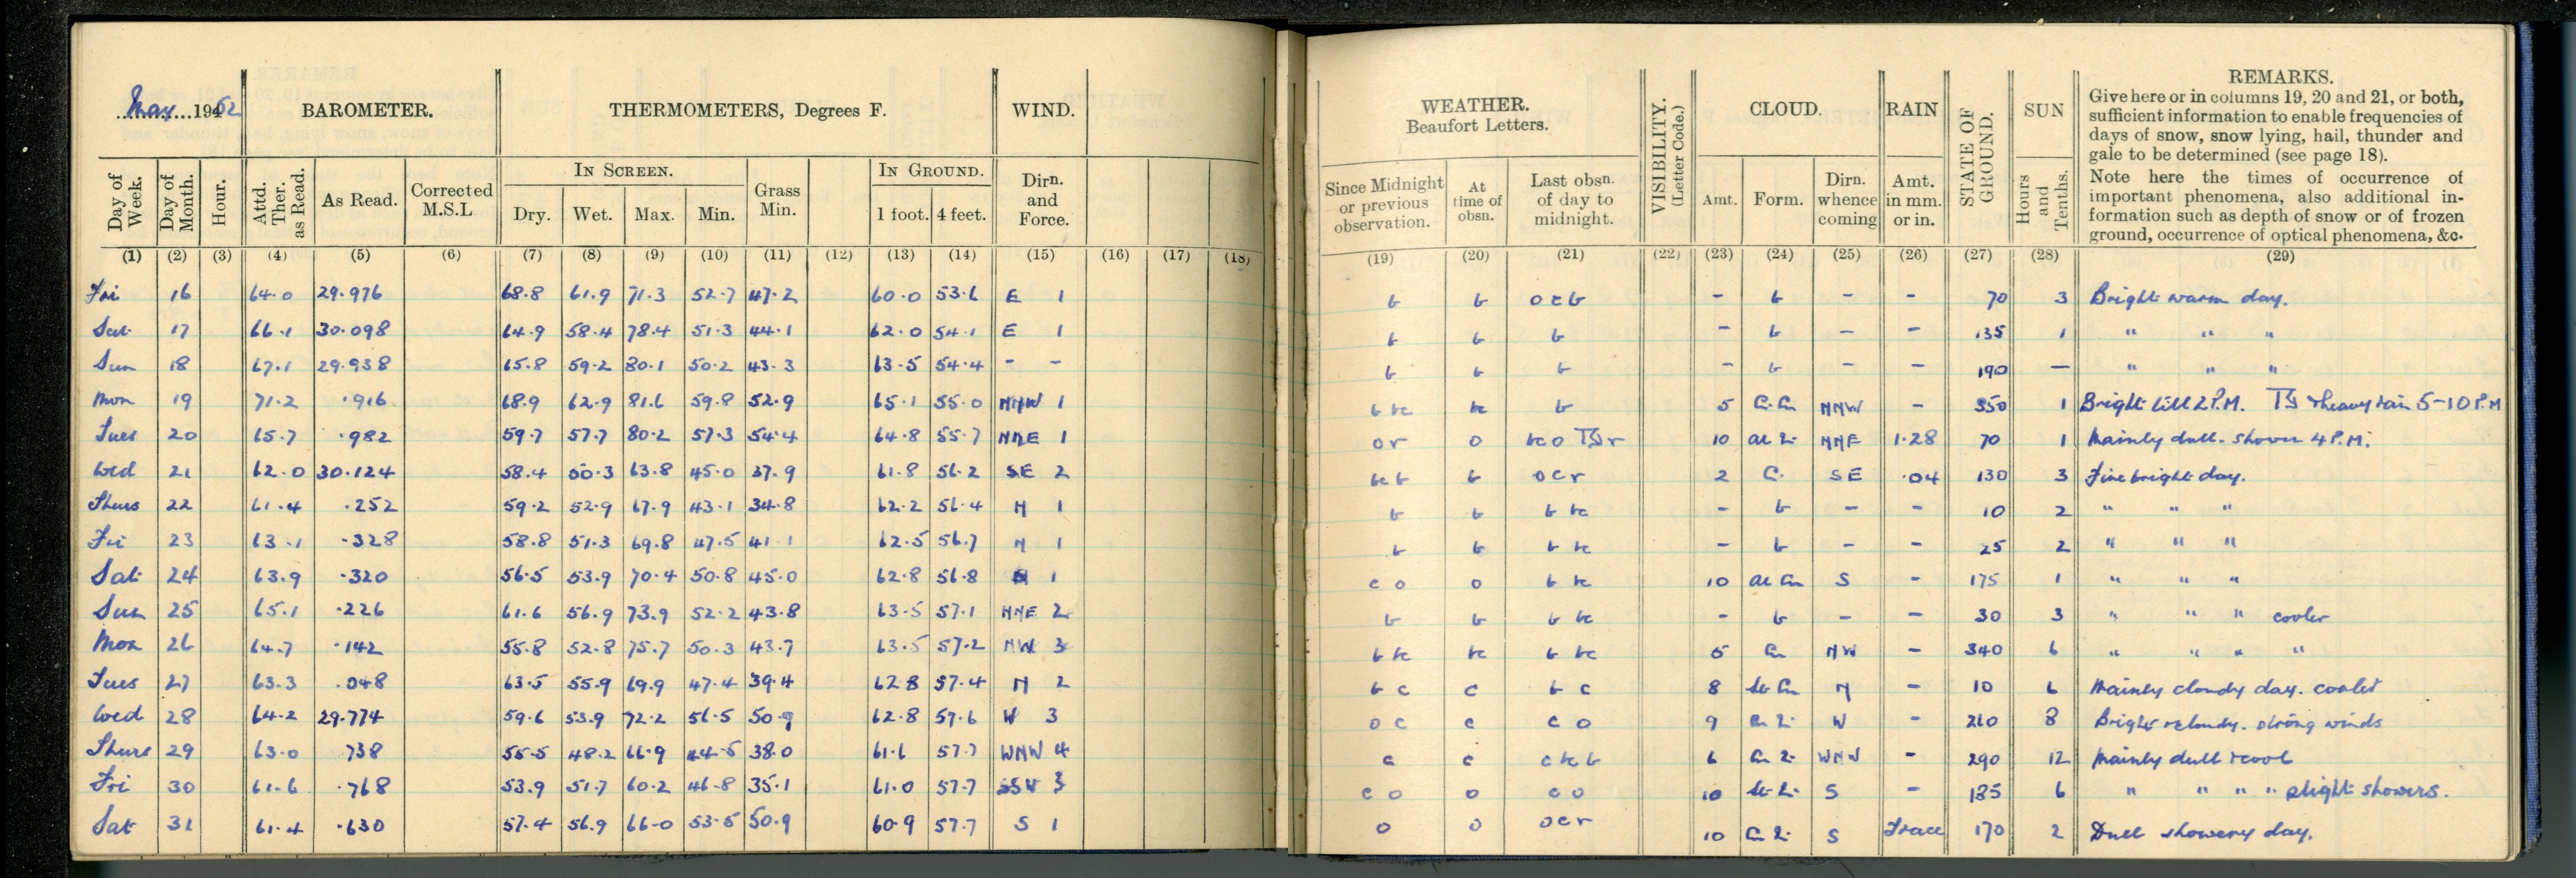 May 1952
BAROMETER.
THERMOMETERS, Degrees F.
WIND.
Day of Week.
Day of Month.
Hour.
Attd. Ther. as Read.
As Read.
Corrected M.S.L
IN SCREEN.
Dry. Wet. Max. Min.
Grass Min.
IN GROUND.
1 foot. 4 feet.
Dirn. and Force.
(1) (2) (3) (4) (5) (6) (7) (8) (9) (10) (11) (12) (13) (14) (15) (16) (17) (18)
Fri 16 64.0 29.976 68.8 61.9 71.3 52.7 47.2 60.0 53.6 E 1
Sat 17 66.1 30.098 64.9 58.4 78.4 51.3 44.1 62.0 54.1 E 1
Sun 18 67.1 29.938 65.8 59.2 80.1 50.2 43.3 63.5 54.4 - -
Mon 19 71.2 .916 68.9 62.9 81.6 59.8 52.9 65.1 55.0 NNW 1
Tues 20 65.7 .982 59.7 57.7 80.2 57.3 54.4 64.8 55.7 NNE 1
Wed 21 62.0 30.124 58.4 50.3 63.8 45.0 37.9 61.8 56.2 SE 2
Thurs 22 61.4 .252 59.2 52.9 67.9 43.1 34.8 62.2 56.4 N 1
Fri 23 63.1 .328 58.8 51.3 69.8 47.5 41.1 62.5 56.7 N 1
Sat 24 63.9 .320 56.5 53.9 70.4 50.8 45.0 62.8 56.8 1
Sun 25 65.1 .226 61.6 56.9 73.9 52.2 43.8 63.5 57.1 NNE 2
Mon 26 64.7 .142 55.8 52.8 75.7 50.3 43.7 63.5 57.2 NW 3
Tues 27 63.3 .048 63.5 55.9 69.9 47.4 39.4 62.8 57.4 N 2
Wed 28 64.2 29.774 59.6 53.9 72.2 56.5 50.9 62.8 57.6 W 3
Thurs 29 63.0 .738 55.5 48.2 66.9 44.5 38.0 61.6 57.7 WNW 4
Fri 30 61.6 .768 53.9 51.7 60.2 46.8 35.1 61.0 57.7 SSW 3
Sat 31 61.4 .630 57.4 56.9 66.0 53.5 50.9 60.9 57.7 S 1
WEATHER.
Beaufort Letters.
Since Midnight or previous observation.
At time of obsn.
Last obsn. of day to midnight.
VISIBILITY. (Letter Code.)
CLOUD.
Amt. Form.
Dirn. whence coming
RAIN
Amt. in mm. or in.
STATE OF GROUND.
SUN
Hours and Tenths.
REMARKS.
Give here or in columns 19, 20 and 21, or both,
sufficient information to enable frequencies of
days of snow, snow lying, hail, thunder and
gale to be determined (see page 18).
Note here the times of occurrence of
important phenomena, also additional in-
formation such as depth of snow or of frozen
ground, occurrence of optical phenomena, &c.
(19) (20) (21) (22) (23) (24) (25) (26) (27) (28) (29)
b b ocb - b - - 70 3 Bright warm day.
b b b - b - - 135 1 " " "
b b b - b - - 190 - " " "
b bc bc b 5 NNW - 350 1 Bright till 2 P.M. heavy rain 5-10 P.M
or o bco r 10 NNE 1.28 70 1 Mainly dull. shower 4 P.M.
bc b b ocr 2 C. SE .04 130 3 Fine bright day.
b b b bc - b - - 10 2 " " "
b b b bc - b - - 25 2 " " "
c o o b bc 10 S - 175 1 " " "
b b b bc - b - - 30 3 " " " cooler
b bc bc b bc 5 Cu NW - 340 6 " " " "
b c c b c 8 St Cu N - 10 6 Mainly cloudy day. cooler
o c c c o 9 W - 260 8 Bright & cloudy. strong winds
c c c bc b 6 WNW - 290 12 Mainly dull & cool
c o o c o 10 S - 185 6 " " " " slight showers.
o o ocr 10 S Trace 170 2 Dull showery day.